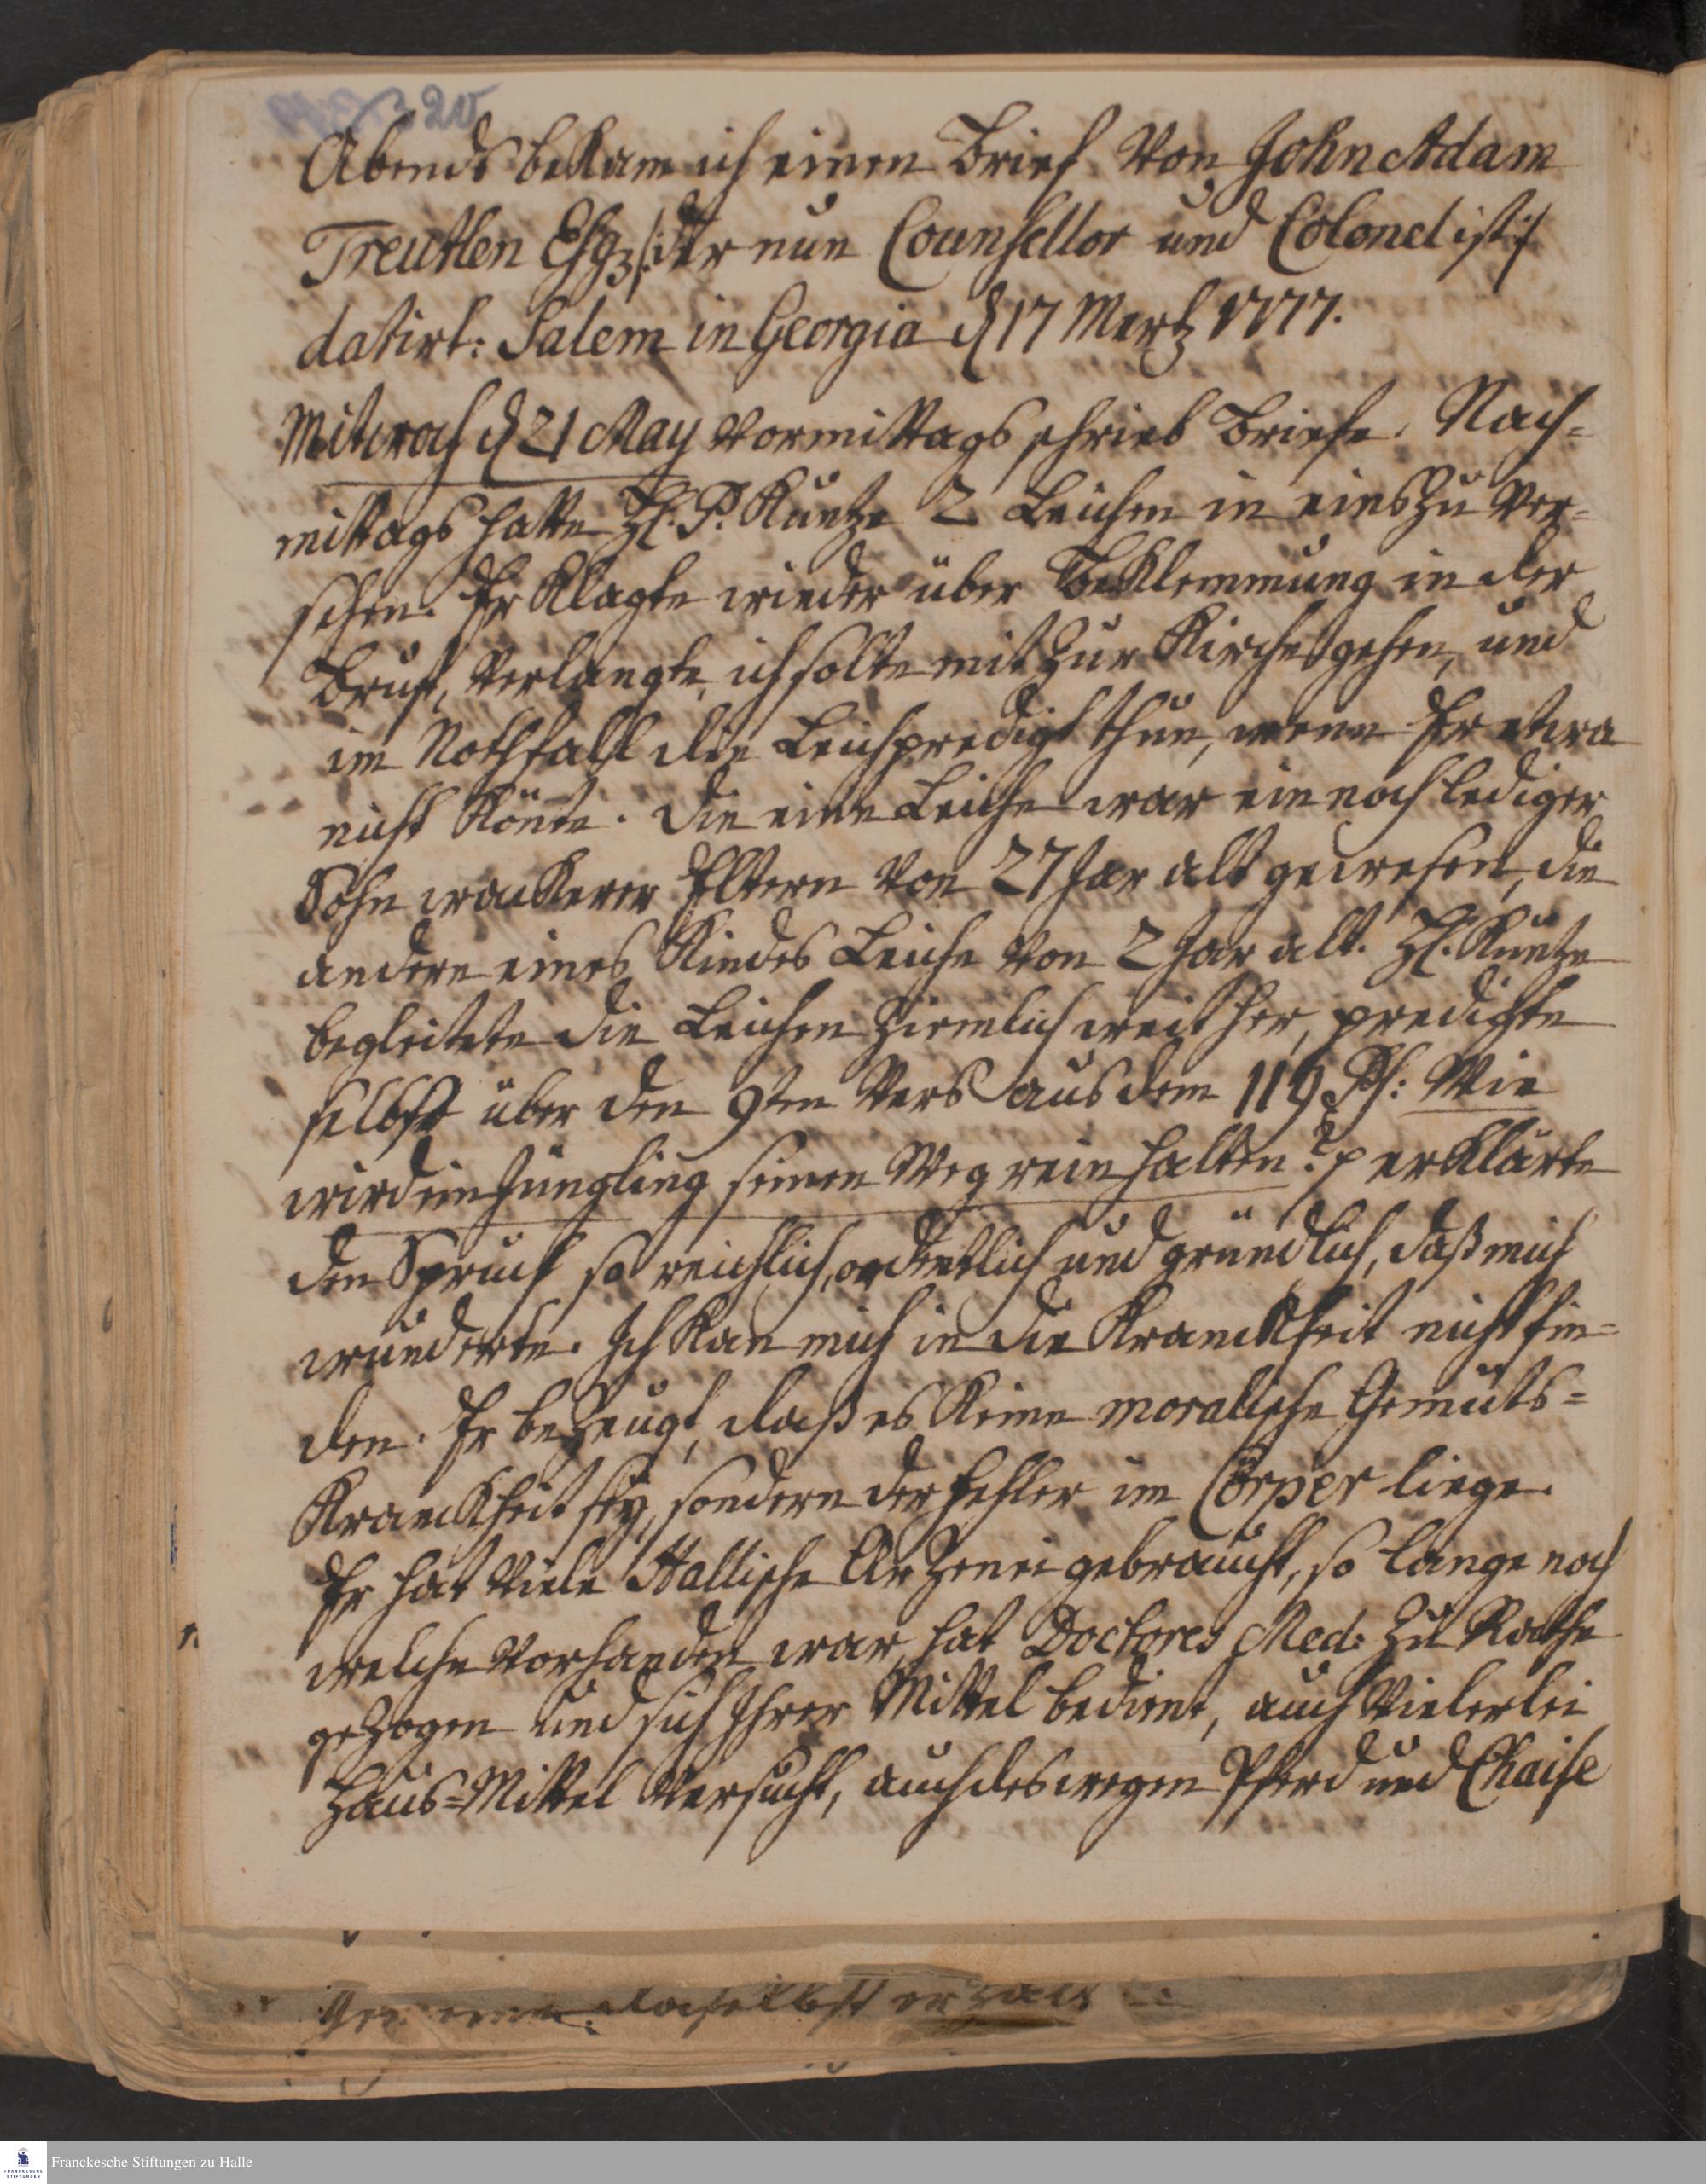 Abends bekam ich einen Brief von John Adam
Treutlen Esqz /: der nun Counsellor und Colonel ist :/
datirt: Salem in Georgia d 17 Mertz 1777.
Mitwoch d 21 May vormittags schrieb Briefe. Nach=
mittags hatte H. P. Kuntze 2 Leichen in eins zu ver=
sehen. Er klagte wieder über Beklemmung in der
Brust, verlangte, ich solte mit zur Kirche gehen, und
im Nothfall die Leichpredigt thun, wenn Er etwa
nicht könte. Die eine Leiche war ein noch lediger
Sohn wackerer Eltern von 27 Jar alt gewesen, die
andere eines Kindes Leiche von 2 Jar alt. H. Kuntze
begleitete die Leichen ziemlich weit her, predigte
selbst über den 9ten Vers aus dem 119 Ps: Wie
wird ein Jüngling seinen Weg rein halten? p erklärte
den Spruch so reichlich, ordentlich und gründlich, daß mich
wunderte. Ich kan mich in die Kranckheit nicht fin=
den. Er bezeugt, daß es keine moralische Gemüts=
Kranckheit sey, sondern der Fehler im Cörper liege.
Er hat viele Hallische Arzenei gebraucht, so lange noch
welche vorhanden war, hat Doctores Med: zu Rathe
gezogen und sich Ihrer Mittel bedient, auch vielerlei
Haus=Mittel versucht, auch deswegen Pferd und Chaise
daselbst
Franckesche Stiftungen zu Halle
FRANCKESCHE
STIFTUNGEN